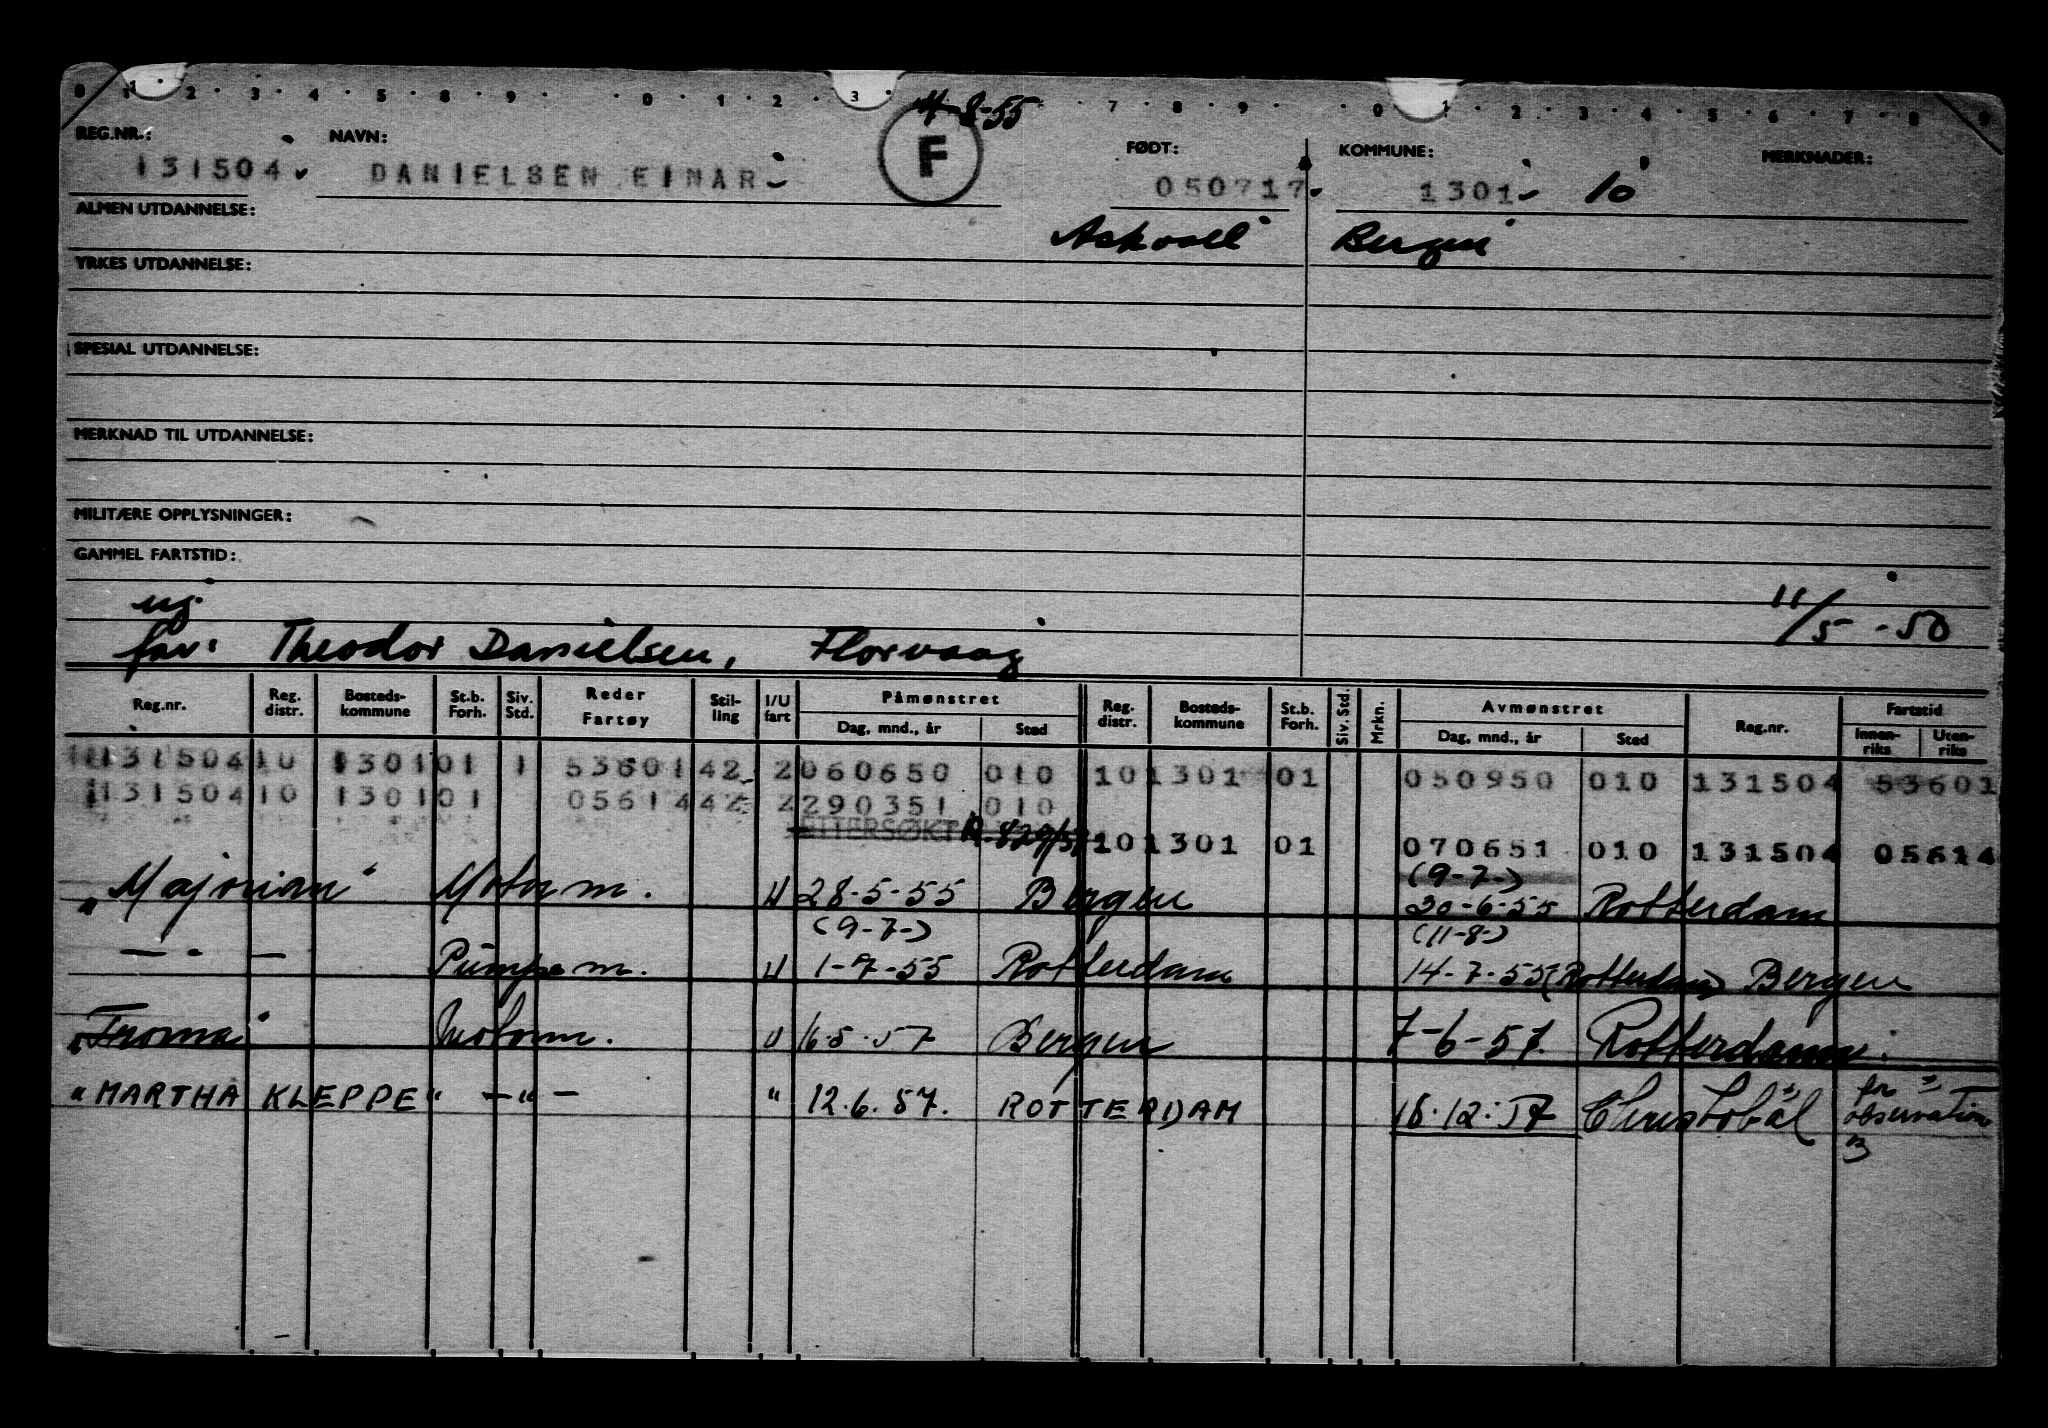 0 1 2 3 4 5 8 9 0 1 2 3 7 8 9 0 1 2 3 4 5 6 7 8 9
4-8-55
REG.NR.: NAVN: F FØDT: KOMMUNE: MERKNADER:
131504 DANIELSEN EINAR 050717 1301 10
ALMEN UTDANNELSE: Askvoll Bergen
YRKES UTDANNELSE:
SPESIAL UTDANNELSE:
MERKNAD TIL UTDANNELSE:
MILITÆRE OPPLYSNINGER:
GAMMEL FARTSTID:
ug. 11/5-50
far: Theodor Danielsen, Florvaag
Reg.nr. Reg. distr. Bosteds-kommune St.b. Forh. Siv. Std. Reder Fartøy Stil-ling I/U fart Påmønstret Dag, mnd., år Sted Reg. distr. Bosteds-kommune St.b. Forh. Siv. Std. Mrkn. Avmønstret Dag, mnd., år Sted Reg.nr. Fartstid Innen-riks Uten-riks
131504 10 1301 01 1 53601 42 2 060650 010 10 1301 01 050950 010 131504 53601
131504 10 1301 01 05614 42 2 290351 010
ETTERSØKT 10 1301 01 070651 010 131504 05614
"Majorian" Motorm. U 28-5-55 Bergen (9-7-) 20-6-55 Rotterdam
— " — Pumpem. U (9-7-) 1-7-55 Rotterdam (11-8-) 14-7-55 (Rotterdam) Bergen
Motorm. U 16.5.57 Bergen 7-6-57. Rotterdam.
"MARTHA KLEPPE" — " — " 12.6.57. ROTTERDAM 16.12.57 Christobal for observation